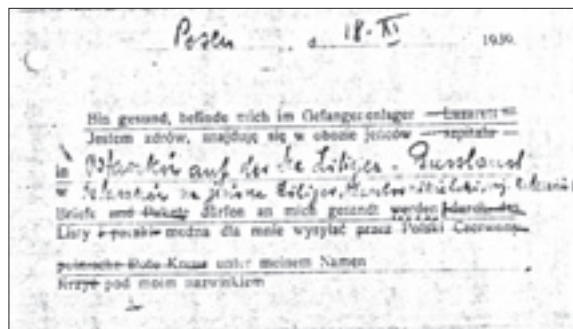 Posen a 18-XI 1939.
Bin gesund, befinde mich im Gefangenenlager — Lazarett
Jestem zdrów, znajduję się w obozie jeńców — szpitalu —
in Ostaszków auf der See Seliger - Russland
w Ostaszków na jeziorze Seliger,
Briefe und Pakete dürfen an mich gesandt werden durch das
Listy i paczki można dla mnie wysyłać przez Polski Czerwony
polnische Rote Kreuz unter meinem Namen
Krzyż pod moim nazwiskiem